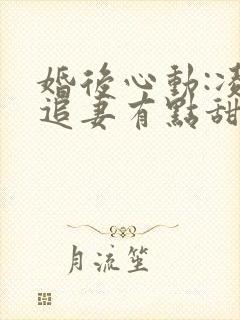 婚後心動:凌
追妻有點甜
月流笙